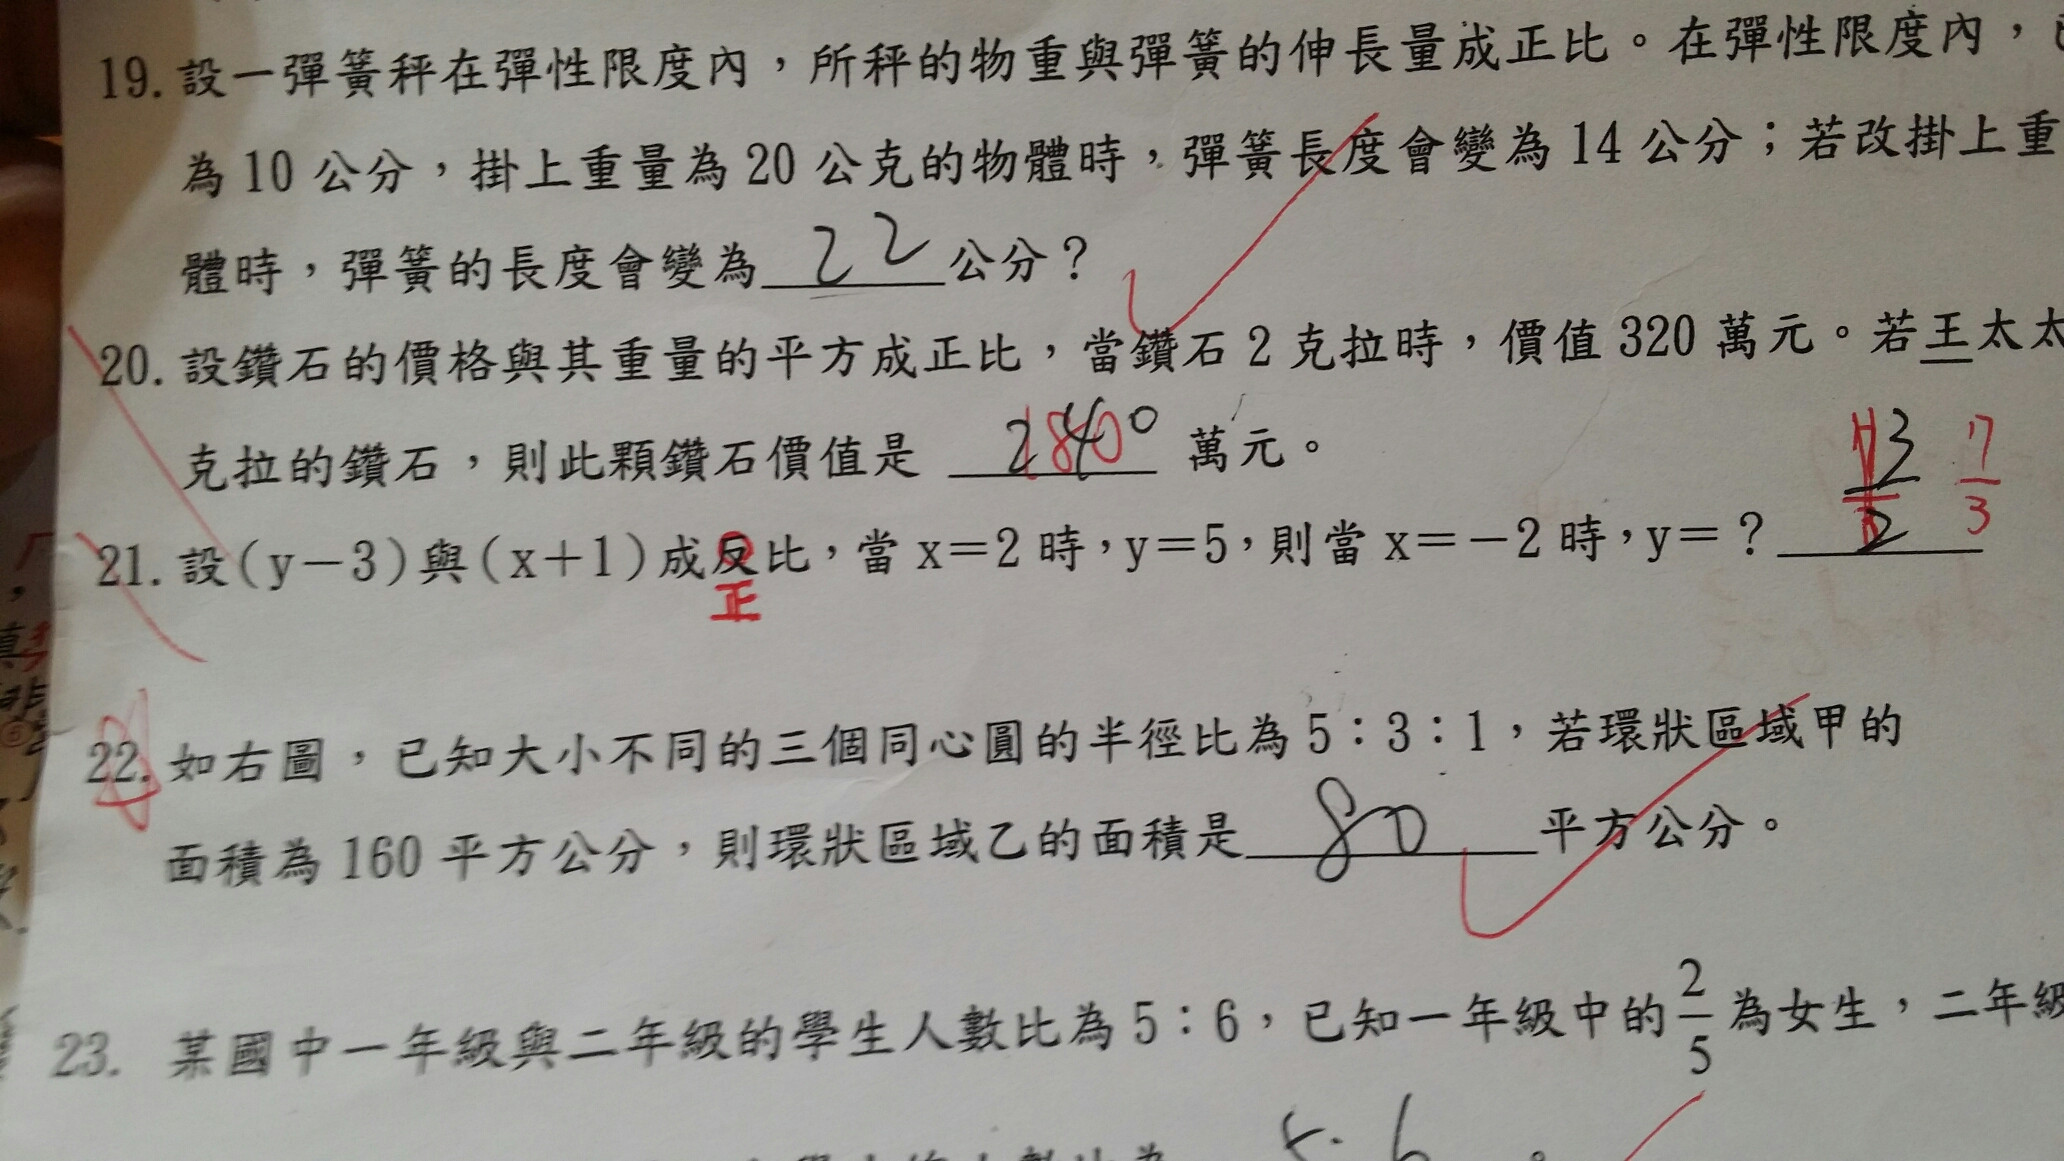 19. 設一彈簧秤在彈性限度內，所秤的物重與彈簧的伸長量成正比。在彈性限度內，
為 10 公分，掛上重量為 20 公克的物體時，彈簧長度會變為 14 公分；若改掛上重
體時，彈簧的長度會變為 22 公分？
20. 設鑽石的價格與其重量的平方成正比，當鑽石 2 克拉時，價值 320 萬元。若王太太
克拉的鑽石，則此顆鑽石價值是 萬元。
21. 設(y－3)與(x＋1)成反比，當 x＝2 時，y＝5，則當 x＝－2 時，y＝？ 7/3
正
22. 如右圖，已知大小不同的三個同心圓的半徑比為 5：3：1，若環狀區域甲的
面積為 160 平方公分，則環狀區域乙的面積是 80 平方公分。
23. 某國中一年級與二年級的學生人數比為 5：6，已知一年級中的 2/5 為女生，二年級